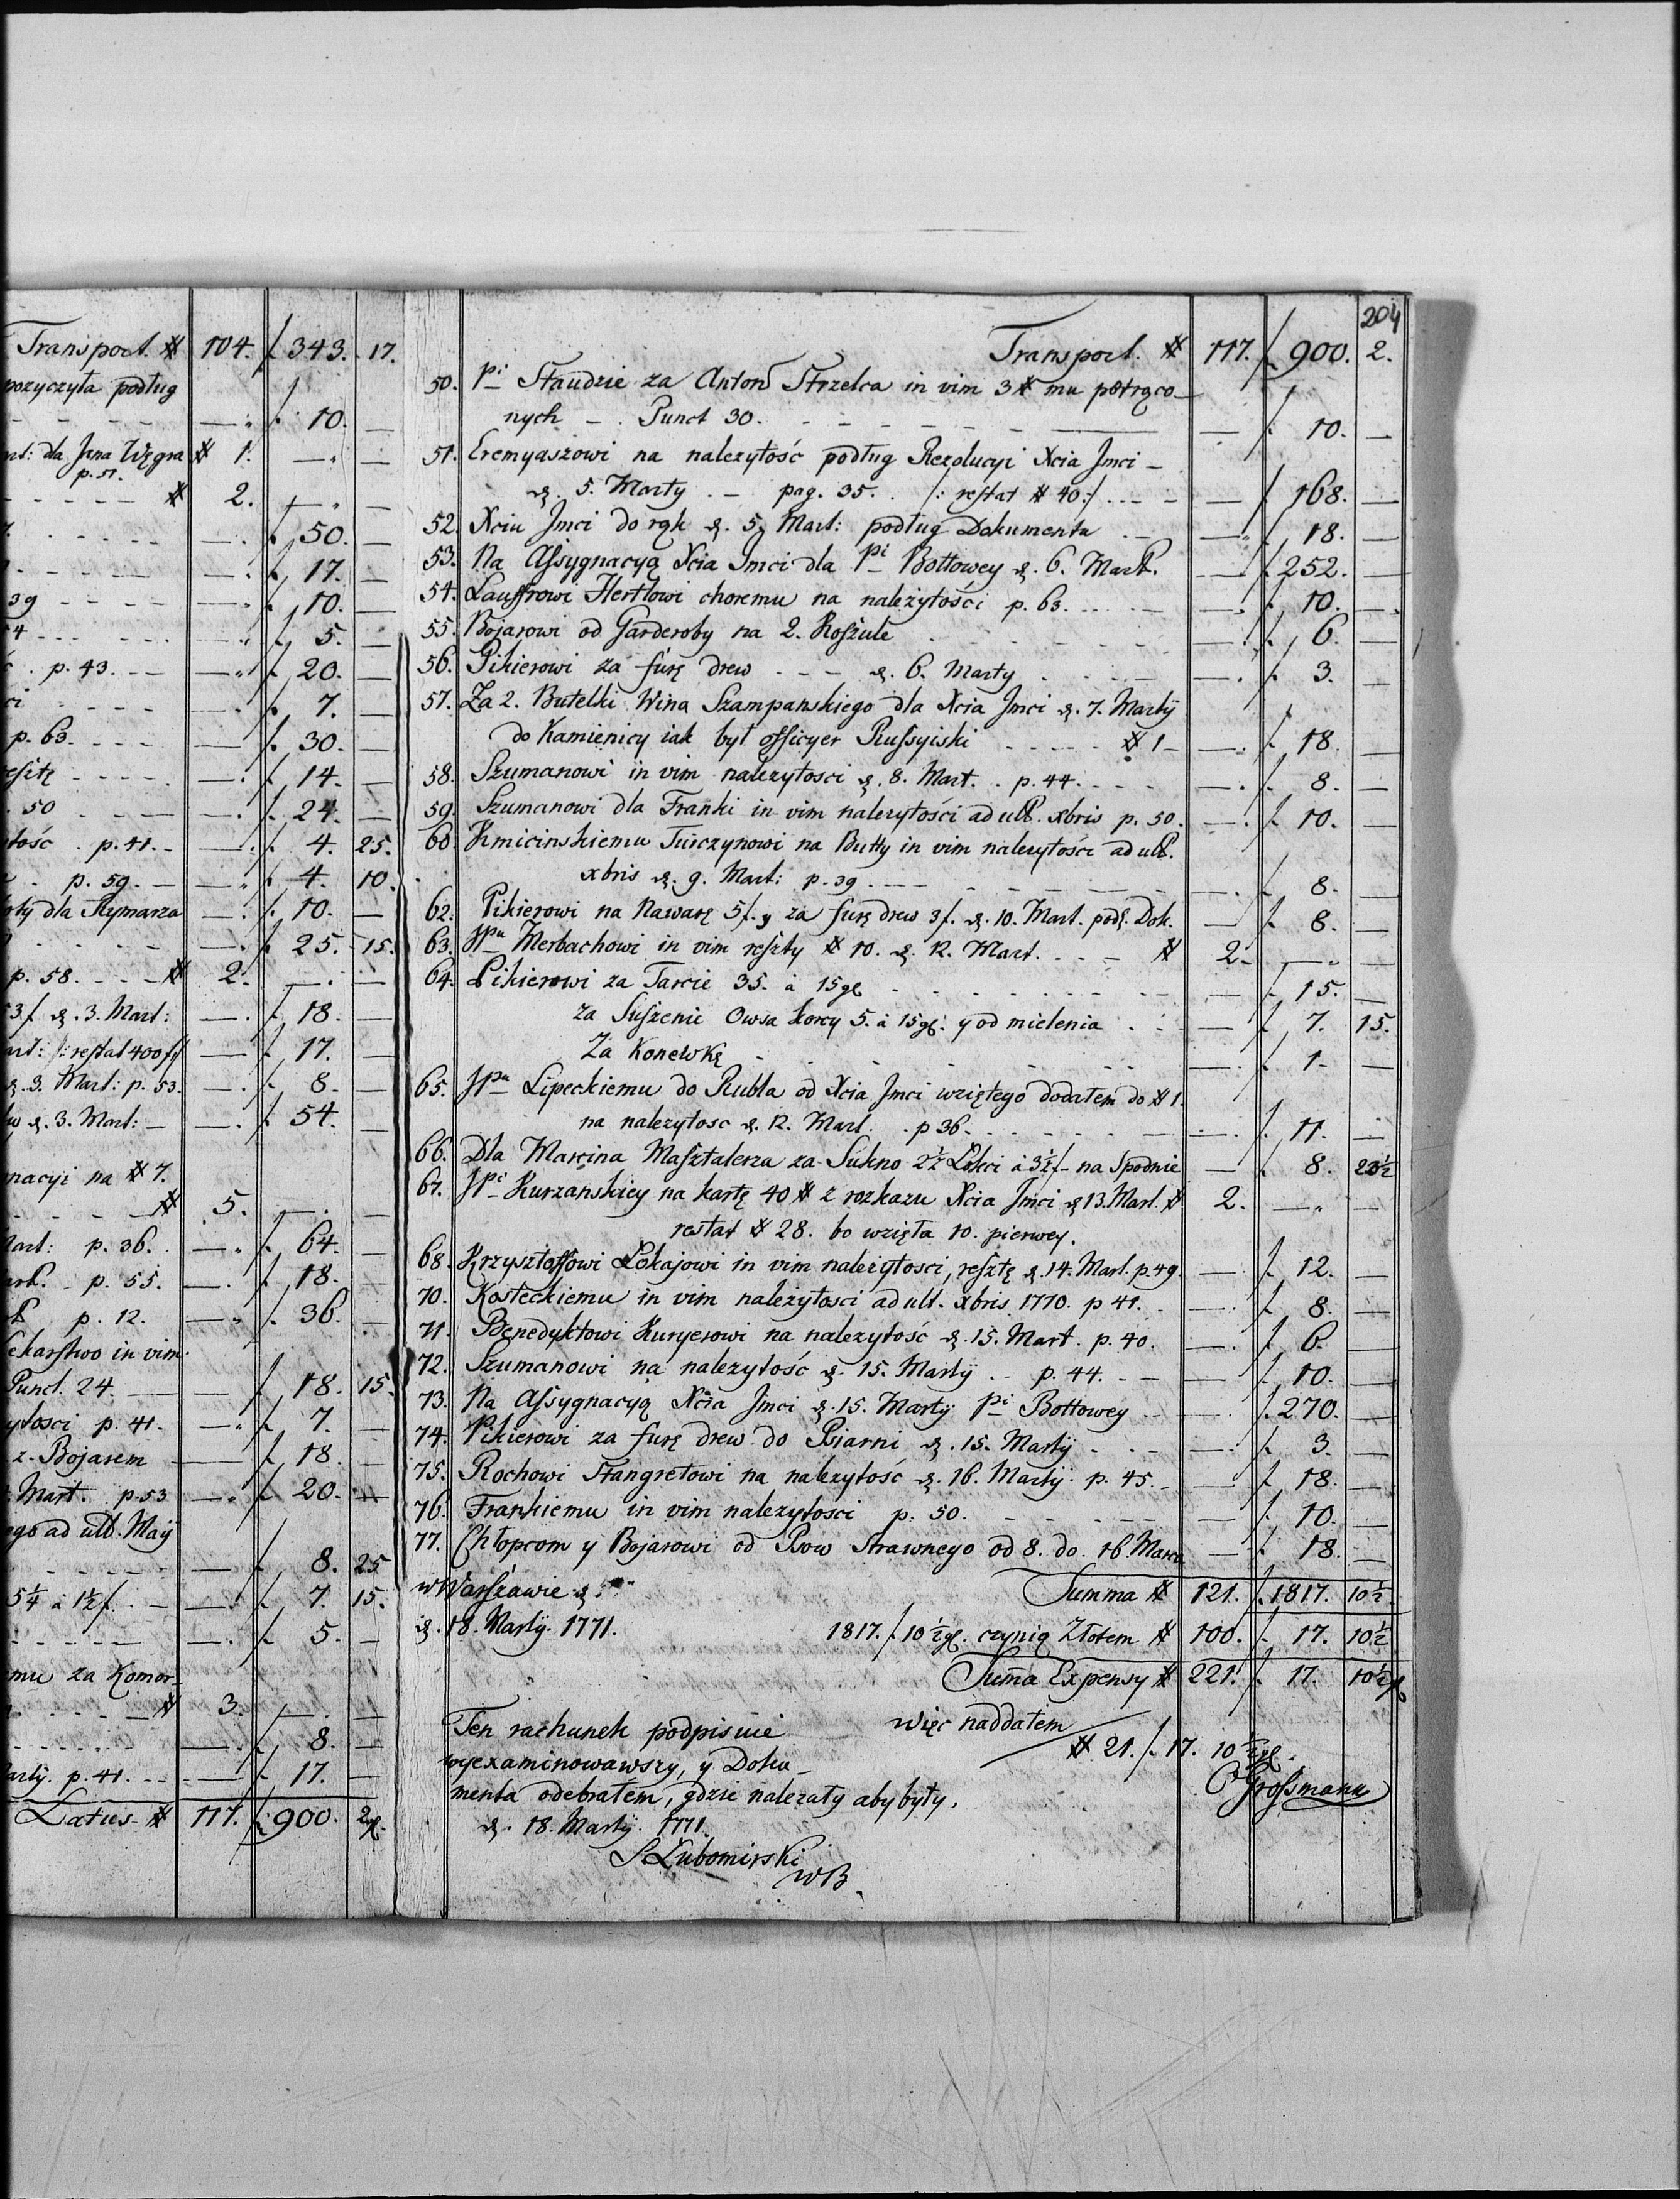 Transport # 104. f. 343. 17.
pozyczyła podług
— f. 10. —
art: dla Jana Węgra # 1. — —
p. 51.
# 2. — —
— f. 50. —
— f. 17. —
39 — f. 10. —
54 — f. 5. —
p. 43. — f. 20. —
ci — f. 7. —
p. 63. — f. 30. —
resztę — f. 14. —
50 — f. 24. —
ytość p. 41. — f. 4. 25.
p. 59. — f. 4. 10.
oty dla Rymarza — f. 10. —
— f. 25. 15.
p. 58. # 2. — —
3f d. 3. Mart: — f. 18. —
art: /: restat 400 f:/ — f. 17. —
d. 3. Mart: p. 53. — f. 8. —
d. 3. Mart: — f. 54. —
gnacyi na # 7.
# 5. — —
Mart: p. 36. — f. 64. —
art. p. 55. — f. 18. —
p. 12. — f. 36. —
Lekarstwo in vim
Punct. 24. — f. 18. 15.
ytosci p. 41. — f. 7. —
z. Bojarem — f. 18. —
Mart. p. 53 — f. 20. —
ego ad ult. Maij
— f. 8. 25
5¼ à 1½ f. — f. 7. 15.
— f. 5. —
emu za Komor-
# 3. — —
— f. 8. —
Martij. p. 41. — f. 17. —
Latus # 117. f. 900. 2 gl.
204
Transport. # 117. f. 900. 2.
50. Pi Staudzie za Anton Strzelca in vim 3 # mu potrąco-
nych — Punct 30. — f. 10. —
51. Eremyaszowi na nalezytość podług Rezolucyi Xcia Jmci —
d. 5. Marty. — pag. 35. /: restat # 40 :/ — f. 168. —
52. Xciu Jmci do rąk d. 5. Mart: podług Dokumentu — f. 18. —
53. Na Assygnacyą Xcia Jmci dla Pi Bottowey d. 6. Mart. — f. 252. —
54. Lauffrowi Hertlowi choremu na należytości p. 63. — f. 10. —
55. Bojarowi od Garderoby na 2. Koszule — f. 6. —
56. Pikierowi za furę drew — d. 6. Marty — f. 3. —
57. Za 2. Butelki Wina Szampanskiego dla Xcia Jmci d. 7. Martij
do Kamienicy iak był officyer Russyiski # 1 — — f. 18. —
58. Szumanowi in vim nalezytosci d. 8. Mart. p. 44. — f. 8. —
59. Szumanowi dla Franki in vim nalezytości ad ult. xbris p. 50. — f. 10. —
60. Kmicinskiemu Turczynowi na Butty in vim nalezytości ad ult.
xbris d. 9. Mart: p. 39. — f. 8. —
62. Pikierowi na Nawarę 5 f. y za furę drew 3 f. d. 10. Mart. podł. Dok. — f. 8. —
63. JPu Merbachowi in vim reszty # 10. d. 12. Mart. # 2. — —
64. Pikierowi za Tarcie 35. à 15 gl — f. 15. —
za Suszenie Owsa korcy 5. à 15 gl. y od mielenia — f. 7. 15.
Za Konewkę — f. 1. —
65. JPu Lipeckiemu do Rubla od Xcia Jmci wziętego dodałem do # 1.
na nalezytosc d. 12. Mart. p 36. — f. 11. —
66. Dla Marcina Masztalerza za Sukno 2½ Lokci à 3½ f — na Spodnie — f. 8. 23½
67. JPi Kurzanskiey na kartę 40 # z rozkazu Xcia Jmci d 13. Mart. # 2. — —
restat # 28. bo wzięta 10. pierwey.
68. Krzysztoffowi Lokajowi in vim należytosci, resztę d. 14. Mart. p. 49. — f. 12. —
70. Kosteckiemu in vim należytosci ad ult. xbris 1770. p 41. — f. 8. —
71. Benedyktowi Kuryerowi na nalezytość d. 15. Mart. p. 40. — f. 6. —
72. Szumanowi na nalezytość d. 15. Martij p. 44. — f. 10. —
73. Na Assygnacyą Xcia Jmci d. 15. Martij Pi Bottowey — f. 270. —
74. Pikierowi za furę drew do Psiarni d. 15. Martij — f. 3. —
75. Rochowi Stangretowi na nalezytość d. 16. Martij p. 45. — f. 18. —
76. Frankiemu in vim nalezytosci p. 50. — f. 10. —
77. Chłopcom y Bojarowi od Psow Strawnego od 8. do 16 Marca — f. 18. —
w Warszawie d Summa # 121. f. 1817. 10½
d. 18. Martij. 1771. 1817. f 10½ gl. czynią Złotem # 100. f. 17. 10½
Suma Expensy # 221. f. 17. 10½ gl
więc naddałem
# 21. f. 17. 10½ gl.
Grossmann
Ten rachunek podpisuie
wyexaminowawszy, y Doku-
menta odebrałem, gdzie nalezały aby były.
d. 18. Martij. 1771.
S Lubomirski
WB.